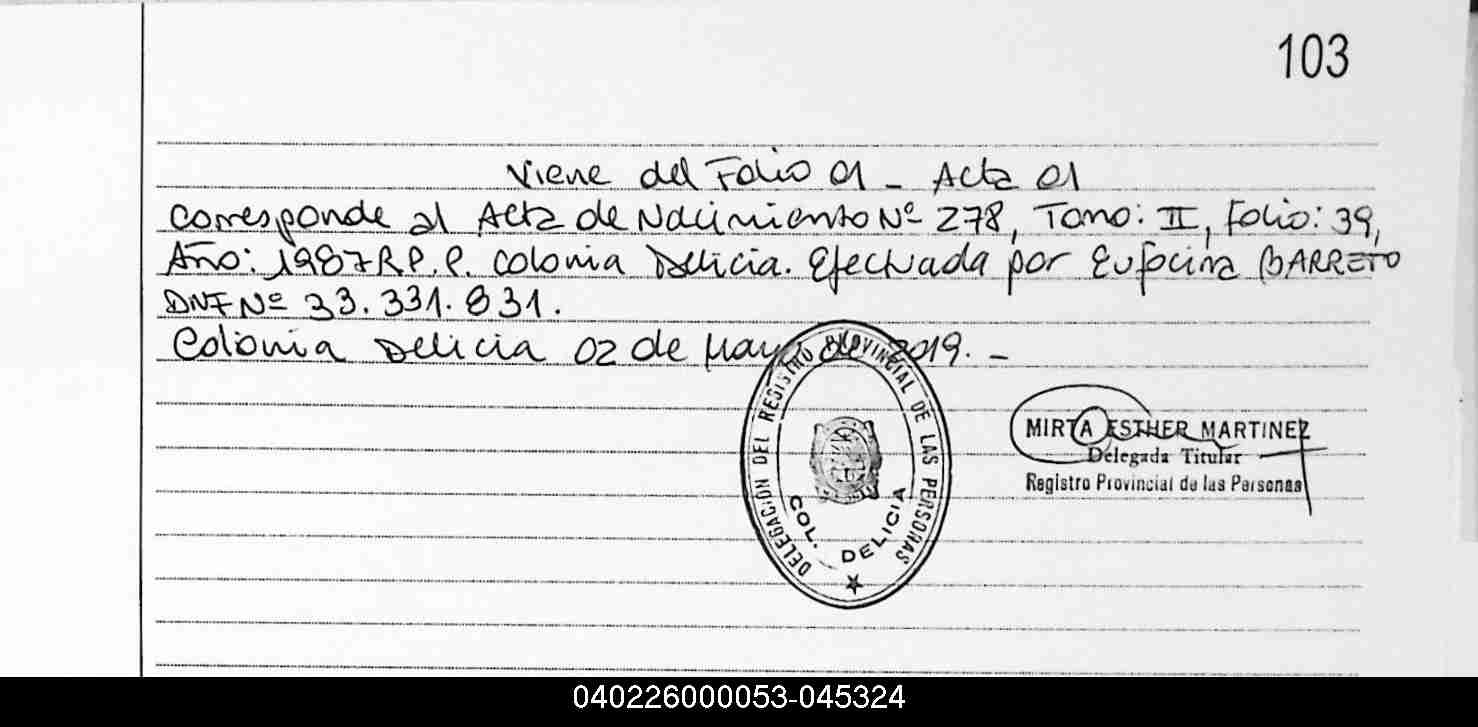 103
Viene del Folio 01 - Acta 01
corresponde al Acta de Nacimiento Nº 278, Tomo: II, Folio: 39,
Año: 1987 R.P.P. Colonia Delicia. Efectuada por Eufocina BARRETO
DNI Nº 33.331.831.
Colonia Delicia 02 de Mayo de 2019. -
DELEGACIÓN DEL REGISTRO PROVINCIAL DE LAS PERSONAS
COL. DELICIA
MIRTA ESTHER MARTINEZ
Delegada Titular
Registro Provincial de las Personas
040226000053-045324